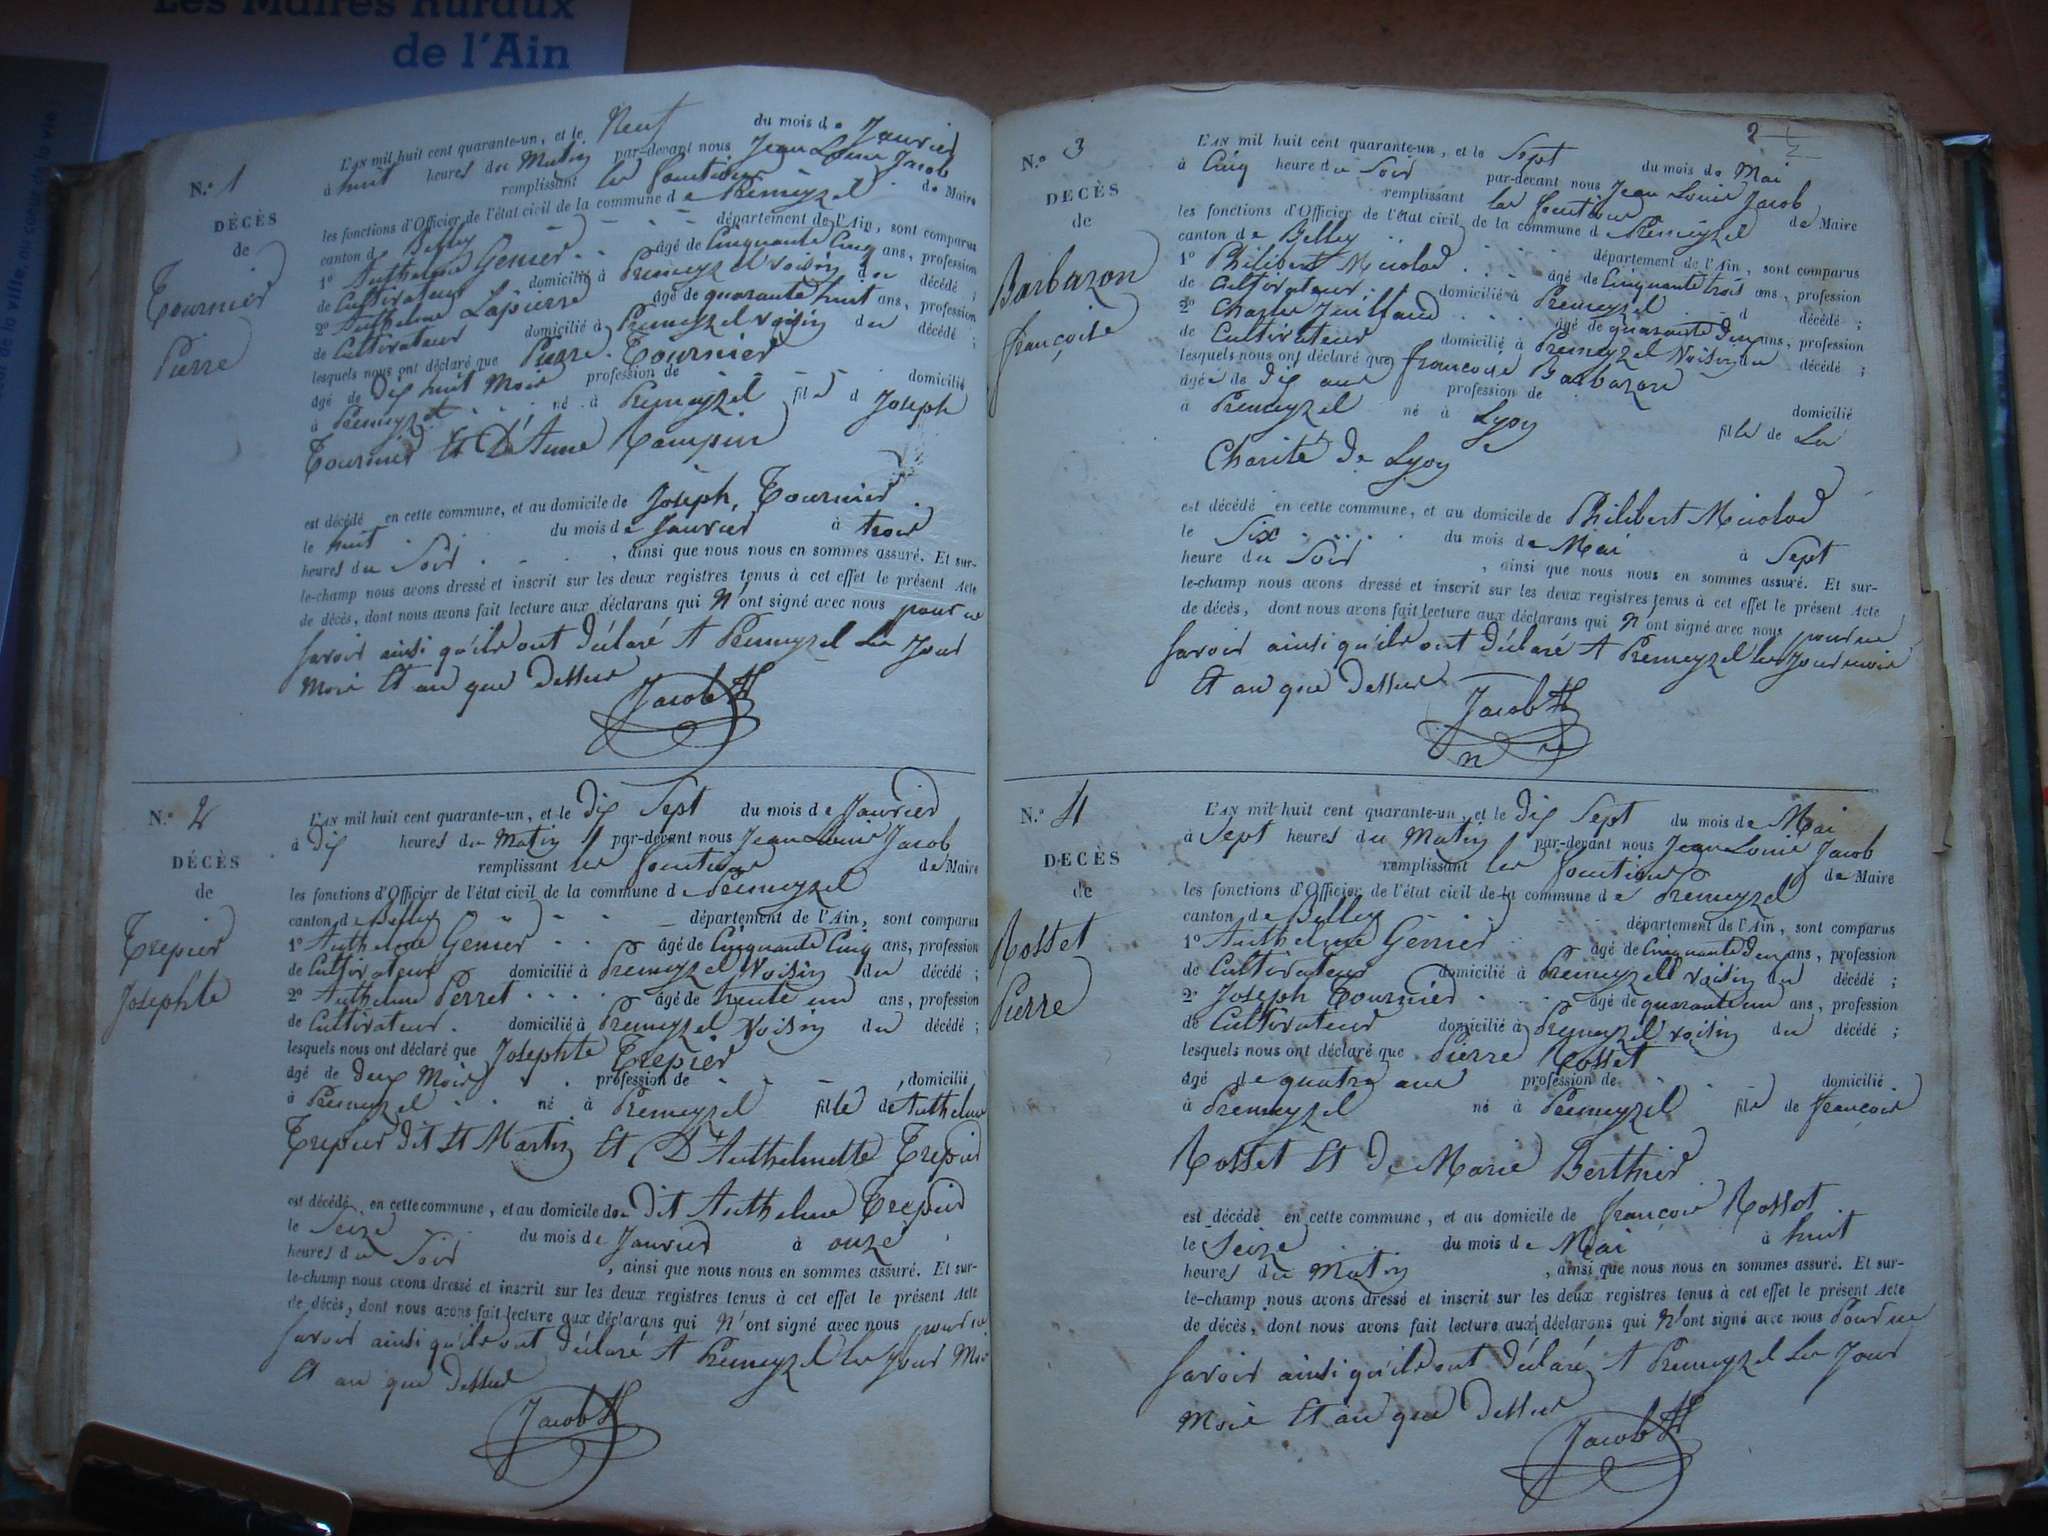 Les Maires Ruraux
de l'Ain
N.° 1
DÉCÈS
de
Tournier
Pierre
L'AN mil huit cent quarante-un, et le Neuf du mois de Janvier
à huit heures du Matin par-devant nous Jean Louis Jacob
remplissant les fonctions de Maire
les fonctions d'Officier de l'état civil de la commune de Premeyzel
canton de Belley département de l'Ain, sont comparus
1° Anthelme Genier âgé de Cinquante Cinq ans, profession
de Cultivateur domicilié à Premeyzel voisin du décédé ;
2° Anthelme Lapierre âgé de quarante huit ans, profession
de Cultivateur domicilié à Premeyzel voisin du décédé ;
lesquels nous ont déclaré que Pierre Tournier
âgé de dix huit Mois profession de domicilié
à Premeyzel né à Premeyzel fils d Joseph
Tournier Et D'Anne
est décédé en cette commune, et au domicile de Joseph, Tournier
le huit du mois de Janvier à trois
heures du Soir, ainsi que nous nous en sommes assuré. Et sur-
le-champ nous avons dressé et inscrit sur les deux registres tenus à cet effet le présent Acte
de décès, dont nous avons fait lecture aux déclarans qui N'ont signé avec nous pour ne
Savoir ainsi qu'ils ont déclaré A Premeyzel Les Jour
Mois Et an que dessus
Jacob
N.° 2
DÉCÈS
de
Trepier
Josephte
L'AN mil huit cent quarante-un, et le dix Sept du mois de Janvier
à dix heures du Matin par-devant nous Jean Louis Jacob
remplissant les fonctions de Maire
les fonctions d'Officier de l'état civil de la commune de Premeyzel
canton de Belley département de l'Ain, sont comparus
1° Anthelme Genier âgé de Cinquante Cinq ans, profession
de Cultivateur domicilié à Premeyzel Voisin du décédé ;
2° Anthelme Perret âgé de trente un ans, profession
de Cultivateur domicilié à Premeyzel Voisin du décédé ;
lesquels nous ont déclaré que Josephte Trepier
âgé de deux Mois profession de domicilié
à Premeyzel né à Premeyzel fille de Anthelme
Trepier dit St Martin Et D'Anthelmette Trepier
est décédé en cette commune, et au domicile du dit Anthelme Trepier
le Seize du mois de Janvier à onze
heures du Soir, ainsi que nous nous en sommes assuré. Et sur-
le-champ nous avons dressé et inscrit sur les deux registres tenus à cet effet le présent Acte
de décès, dont nous avons fait lecture aux déclarans qui N'ont signé avec nous pour ne
Savoir ainsi qu'ils ont déclaré A Premeyzel les Jour Mois
Et an que dessus
Jacob
2
N.° 3
DECÈS
de
Barbazon
françoise
L'AN mil huit cent quarante-un, et le Sept du mois de Mai
à Cinq heure du Soir par-devant nous Jean Louis Jacob
remplissant les fonctions de Maire
les fonctions d'Officier de l'état civil de la commune de Premeyzel
canton de Belley département de l'Ain, sont comparus
1° Philibert Micolod âgé de Cinquante trois ans, profession
de Cultivateur domicilié à Premeyzel d décédé ;
2° Charles Juilland âgé de quarante deux ans, profession
de Cultivateur domicilié à Premeyzel Voisin du décédé ;
lesquels nous ont déclaré que françoise Barbazon
âgée de dix ans profession de domicilié
à Premeyzel né à Lyon fille de La
Charité de Lyon
est décédé en cette commune, et au domicile de Philibert Micolod
le Six du mois de Mai à Sept
heure du Soir, ainsi que nous nous en sommes assuré. Et sur-
le-champ nous avons dressé et inscrit sur les deux registres tenus à cet effet le présent Acte
de décès, dont nous avons fait lecture aux déclarans qui N'ont signé avec nous pour ne
Savoir ainsi qu'ils ont déclaré A Premeyzel les Jour mois
Et an que dessus
Jacob
N.° 4
DECÈS
de
Rosset
Pierre
L'AN mil huit cent quarante-un et le dix Sept du mois de Mai
à Sept heures du Matin par-devant nous Jean Louis Jacob
remplissant les fonctions de Maire
les fonctions d'Officier de l'état civil de la commune de Premeyzel
canton de Belley département de l'Ain, sont comparus
1° Anthelme Genier âgé de Cinquante deux ans, profession
de Cultivateur domicilié à Premeyzel voisin du décédé ;
2° Joseph Tournier âgé de quarante un ans, profession
de Cultivateur domicilié à Premeyzel voisin du décédé ;
lesquels nous ont déclaré que Pierre Rosset
âgé de quatre ans profession de domicilié
à Premeyzel né à Premeyzel fils de françois
Rosset Et de Marie Berthier
est décédé en cette commune, et au domicile de françois Rosset
le Seize du mois de Mai à huit
heures du Matin, ainsi que nous nous en sommes assuré. Et sur-
le-champ nous avons dressé et inscrit sur les deux registres tenus à cet effet le présent Acte
de décès, dont nous avons fait lecture aux déclarans qui N'ont signé avec nous Pour ne
Savoir ainsi qu'ils ont déclaré A Premeyzel Les Jour
Mois Et an que dessus
Jacob